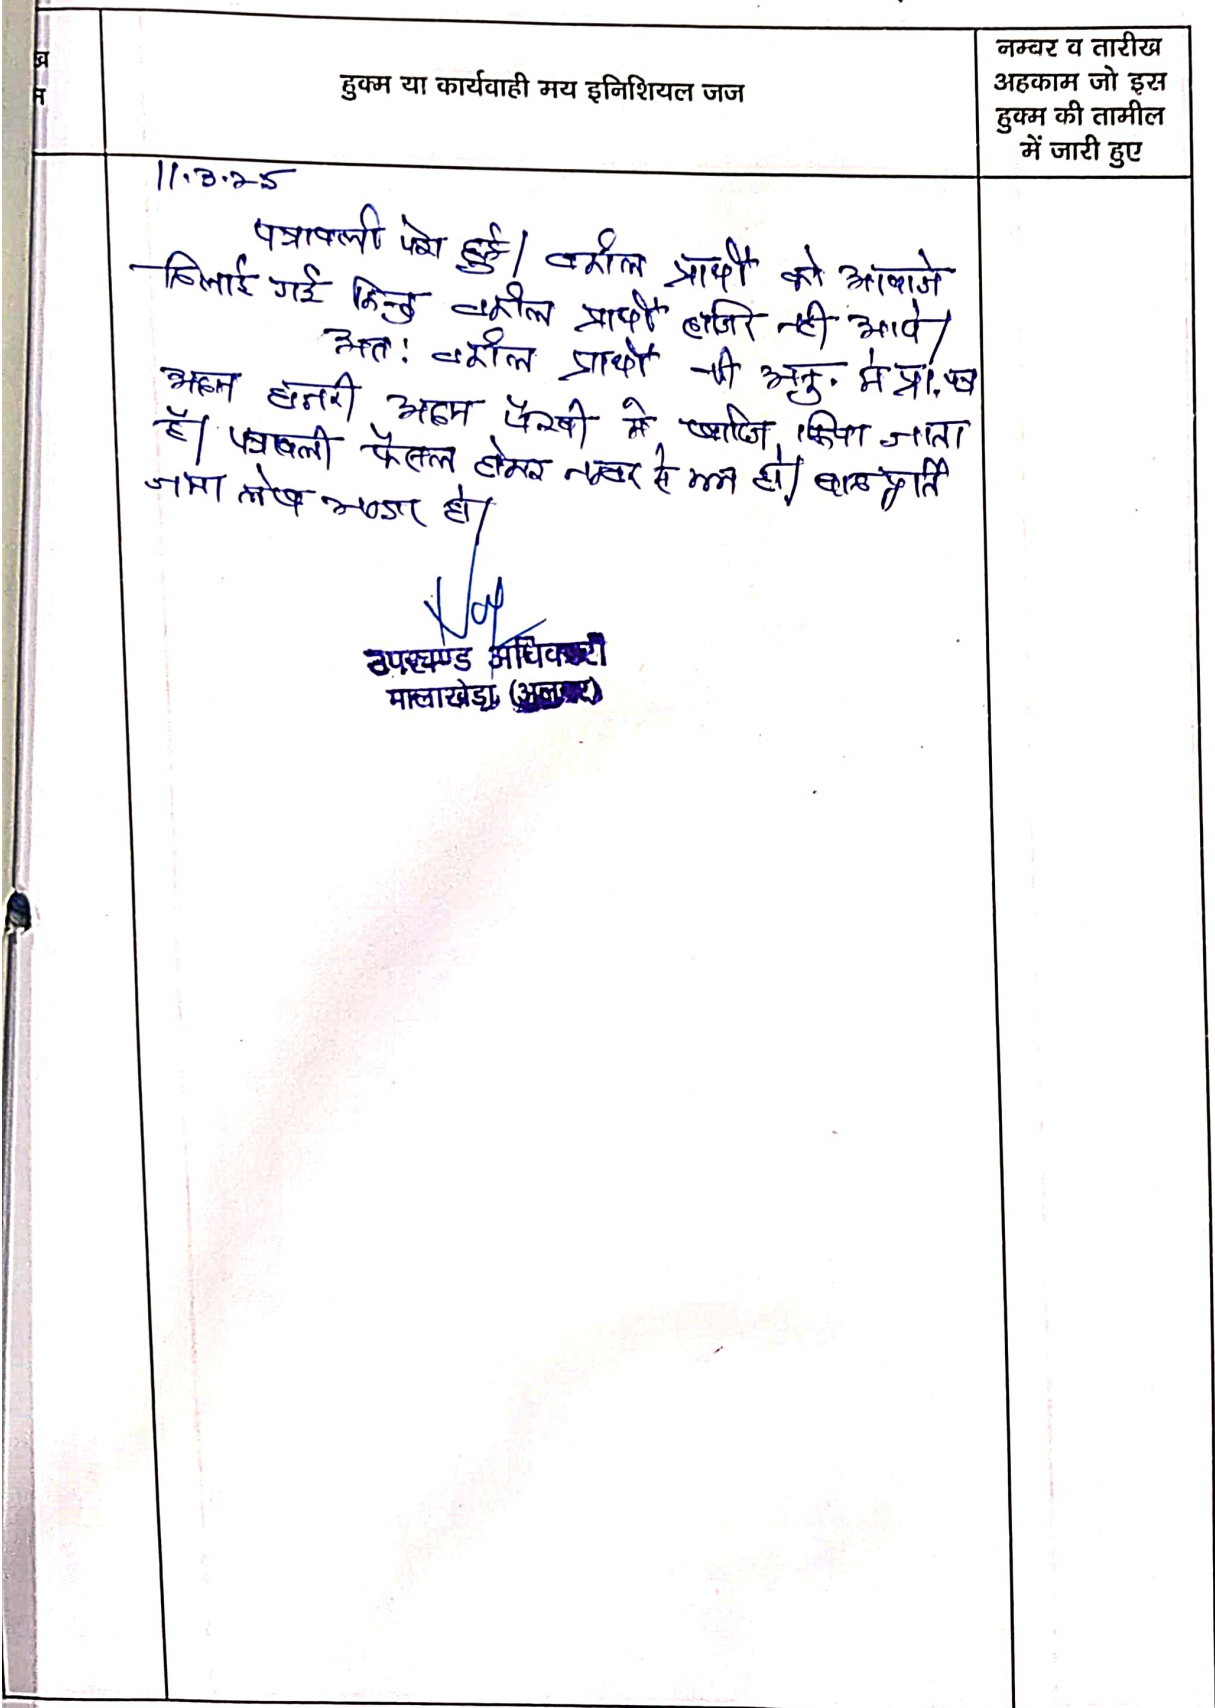 ख
न
हुक्म या कार्यवाही मय इनिशियल जज
नम्बर व तारीख
अहकाम जो इस
हुक्म की तामील
में जारी हुए
11.3.25
पत्रावली पेश हुई। वकील प्रार्थी को आवाजे
दिलाई गई किन्तु वकील प्रार्थी हाजिर नही आये।
अतः वकील प्रार्थी की अनु. मे प्रा. पत्र
अदम हाजरी अदम पैरवी मे खारिज किया जाता
है। पत्रावली फैसल होकर नम्बर से कम हो। बाद पूर्ति
जमा लेख भण्डार हो।
उपखण्ड अधिकारी
मालाखेडा (अलवर)